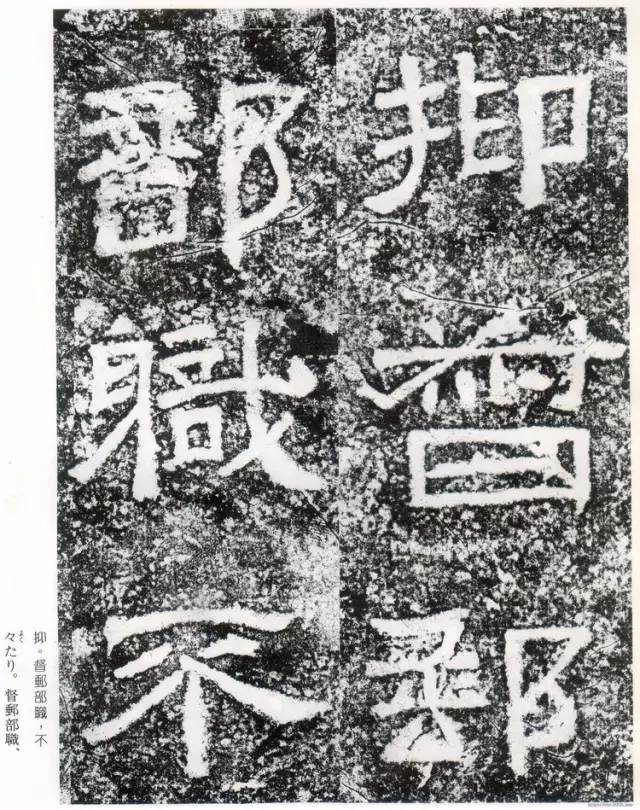 抑督郵
部職不
抑。督郵部職，不
々たり。督郵部職、